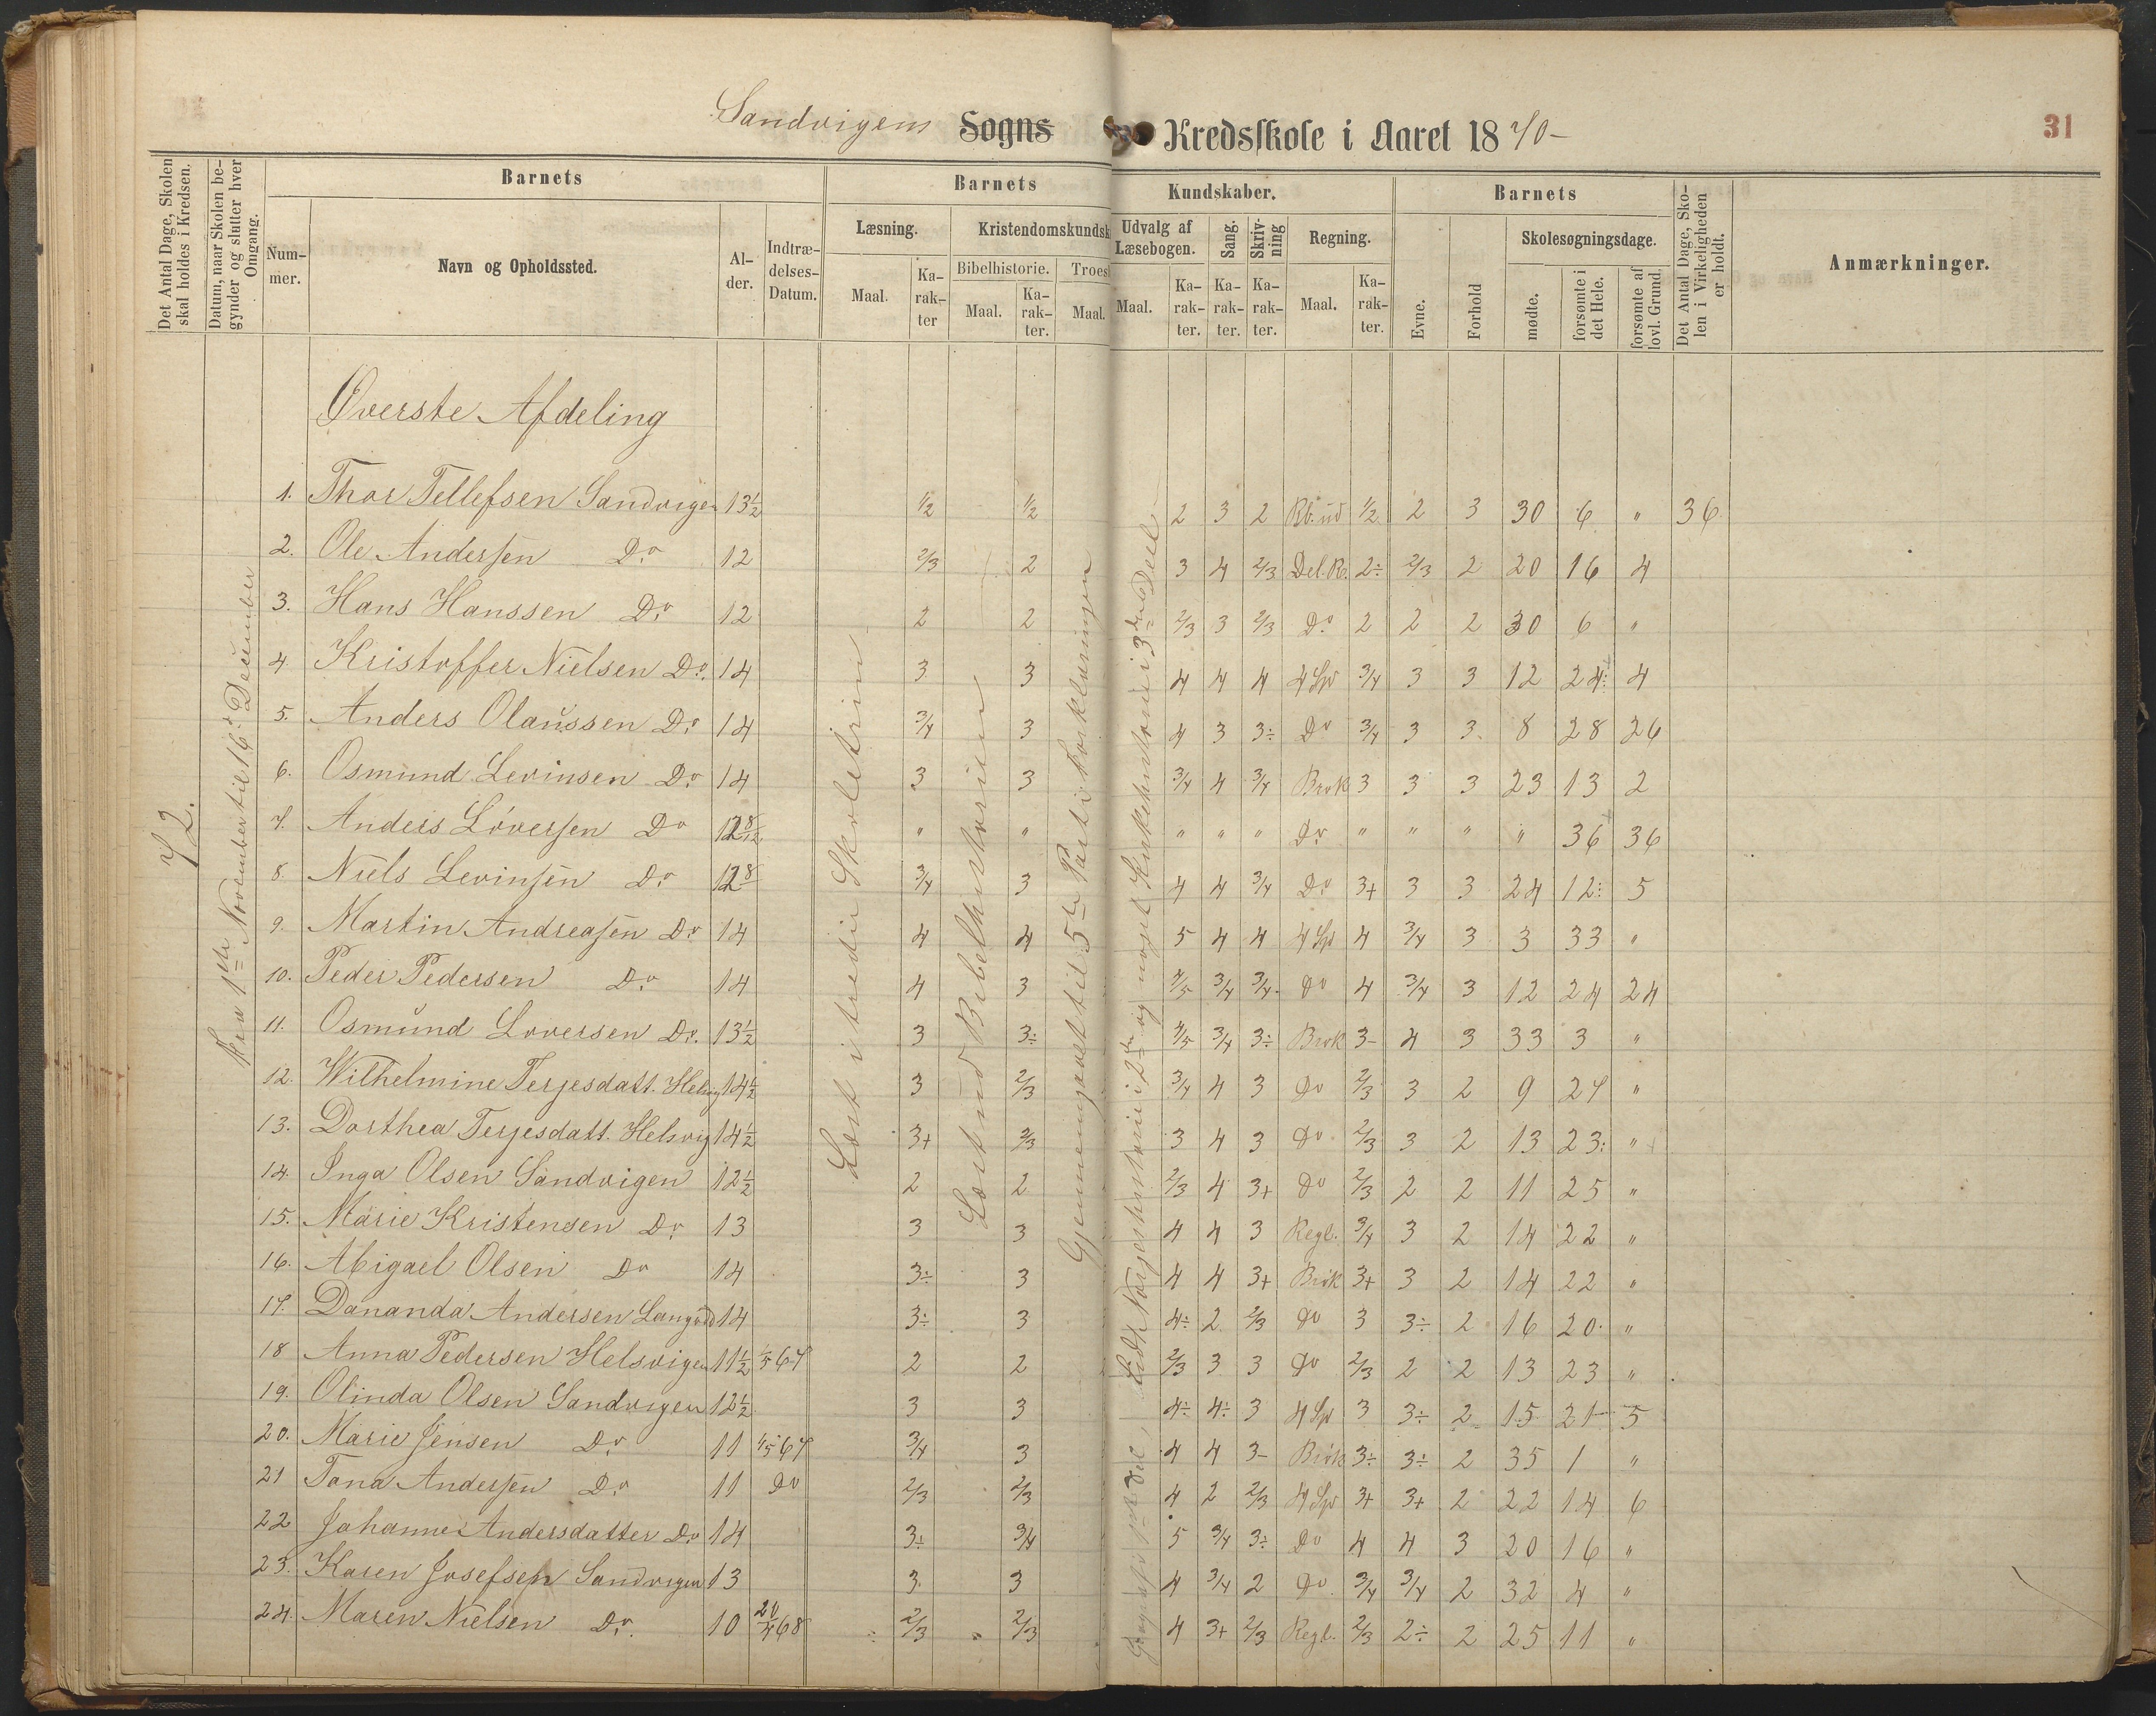 31
Sandvigens Sogns Kredsskole i Aaret 1870-
Det Antal Dage, Skolen skal holdes i Kredsen.
Datum, naar Skolen begynder og slutter hver Omgang.
Barnets
Nummer.
Navn og Opholdssted.
Alder.
Indtrædelses-Datum.
Barnets
Kundskaber.
Læsning.
Maal.
Karakter
Kristendomskundsk
Bibelhistorie.
Maal.
Karakter.
Troes
Maal.
Udvalg af Læsebogen.
Maal.
Karakter.
Sang.
Karakter.
Skrivning
Karakter.
Regning.
Maal.
Karakter.
Barnets
Evne.
Forhold
Skolesøgningsdage.
mødte.
forsømte i det Hele.
forsømte af lovl. Grund.
Det Antal Dage, Skolen i Virkeligheden er holdt.
Anmærkninger.
72.
Fra 1ste November til 16de December
Læst i tredie Skoletrin
Læst ud Bibelhistorien
Gjennemgaaet til 5te Part i Forklaringen
Lidt Norgeshistorie i 2den og noget Kirkehistorie i 3die Deel
Øverste Afdeling
1. Thor Tellefsen Sandvigen 13½ 1/2 1/2 2 3 2 Rb. ud 1/2 2 3 30 6 " 36
2. Ole Andersen Do 12 2/3 2 3 4 2/3 Del.R. 2÷ 2/3 2 20 16 4
3. Hans Hanssen Do 12 2 2 2/3 3 2/3 Do 2 2 2 30 6 "
4. Kristoffer Nielsen Do 14 3 3 4 4 4 4 Sp 3/4 3 3 12 24 4
5. Anders Olaussen Do 14 3/4 3 4 3 3÷ Do 3/4 3 3 8 28 26
6. Osmund Levinsen Do 14 3 3 3/4 4 3/4 Brøk 3 3 3 23 13 2
7. Anders Lóversen Do 12 8/12 " " " " " Do " " " " 36 36
8. Niels Levinsen Do 12 8 3/4 3 4 4 3/4 Do 3+ 3 3 24 12 5
9. Martin Andreasen Do 14 4 4 5 4 4 4 Sp 4 3/4 3 3 33 "
10. Peder Pedersen Do 14 4 3 4/5 3/4 3/4 Do 4 3/4 3 12 24 24
11. Osmund Loversen Do. 13½ 3 3÷ 4/5 3/4 3÷ Brøk 3- 4 3 33 3 "
12. Wilhelmine Terjesdatt. Helsvig 14½ 3 2/3 3/4 4 3 Do 2/3 3 2 9 27 "
13. Dorthea Terjesdatt. Helsvig 14½ 3+ 2/3 3 4 3 Do 2/3 3 2 13 23 "
14. Inga Olsen Sandvigen 12½ 2 2 2/3 4 3+ Do 2/3 2 2 11 25 "
15. Marie Kristensen Do 13 3 3 4 4 3 Regl. 3/4 3 2 14 22 "
16. Abigael Olsen Do 14 3÷ 3 4 4 3+ Brøk 3+ 3 2 14 22 "
17. Dananda Andersen 14 3÷ 3 4÷ 2 2/3 Do 3 3÷ 2 16 20 "
18 Anna Pedersen Helsvigen 11½ 67 2 2 2/3 3 3 Do 2/3 2 2 13 23 "
19. Olinda Olsen Sandvigen 12½ 3 3 4÷ 4÷ 3 4 Sp 3 3÷ 2 15 21 5
20. Marie Jensen Do 11 67 3/4 3 4 4 3- Brøk 3÷ 3÷ 2 35 1 "
21 Tona Andersen Do 11 Do 2/3 2/3 4 2 2/3 4 Sp 3+ 3+ 2 22 14 6
22 Johanne Andersdatter Do 14 3÷ 3/4 5 3/4 3÷ Do 4 4 3 20 16 "
23. Karen Josefsen Sandvigen 13 3 3 4 3/4 2 Do 3/4 3/4 2 32 4 "
24. Maren Nielsen Do. 10 20/4 68 " 2/3 " 2/3 4 3+ 2/3 Regl. 2/3 2÷ 2 25 11 "